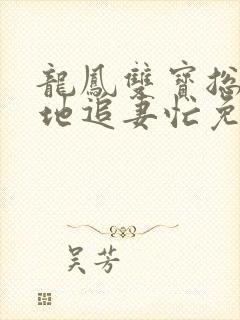 龍鳳雙寶總
地追妻忙免
吴芳